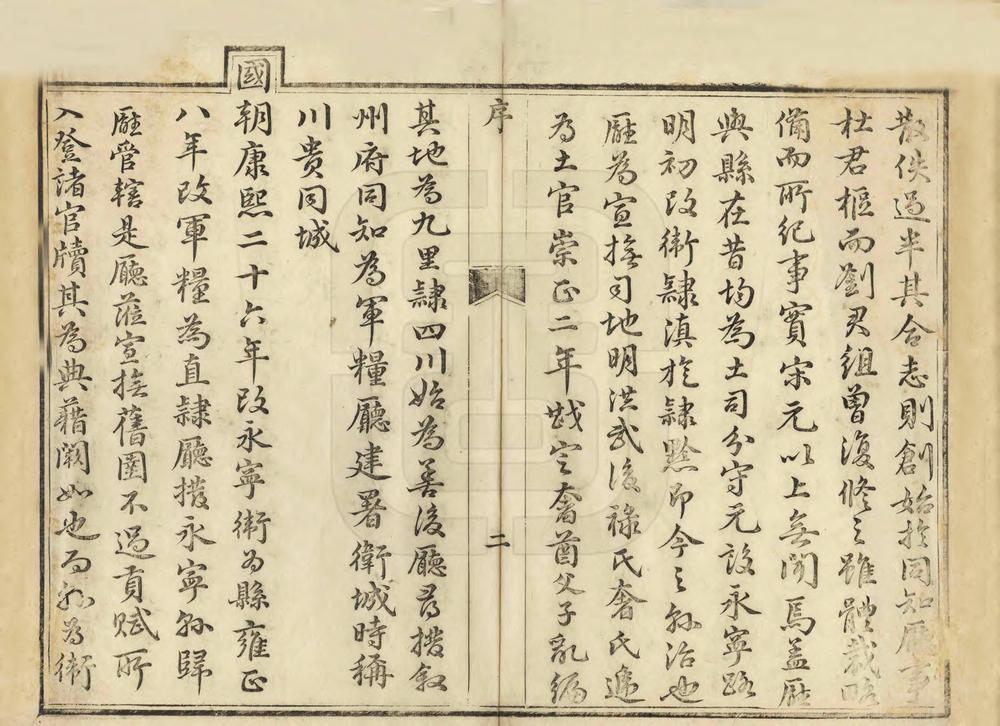 散佚過半其合志則創始於同知廳事
杜君樞而劉君組曾復修之雖體裁略
備而所紀事實宋元以上無聞焉蓋廳
與縣在昔均為土司分守元設永寧路
明初改衛隸滇旋隸黔即今之縣治也
廳為宣撫司地明洪武後祿氏奢氏遞
為土官崇正二年戡定奢酋父子亂編
序
二
其地為九里隸四川始為善後廳尋撥敘
州府同知為軍糧廳建署衛城時稱
川貴同城
國
朝康熙二十六年改永寧衛為縣雍正
八年改軍糧為直隸廳撥永寧縣歸
廳管轄是廳蒞宣撫舊圖不過貢賦所
入登諸官牘其為典籍闕如也而縣為衛